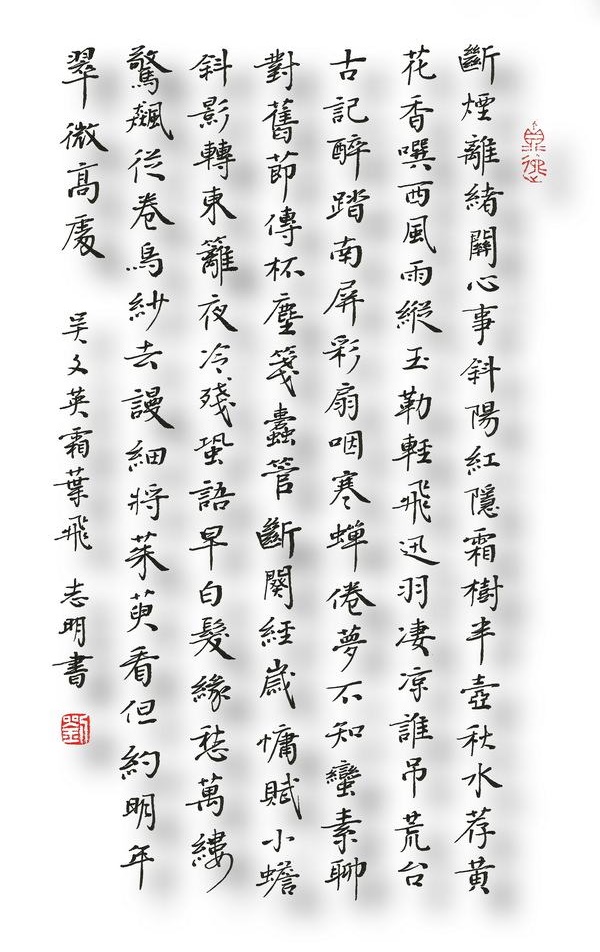 斷煙離緒關心事斜陽紅隱霜樹半壺秋水荐黃
花香噀西風雨縱玉勒輕飛迅羽凄凉誰吊荒台
古記醉踏南屏彩扇咽寒蟬倦夢不知蠻素聊
對舊節傳杯塵箋蠹管斷闋經歲慵賦小蟾
斜影轉東籬夜冷殘蛩語早白髮緣愁萬縷
驚飆從卷烏紗去謾細將茱萸看但約明年
翠微高處 吳文英霜葉飛 志明書
劉